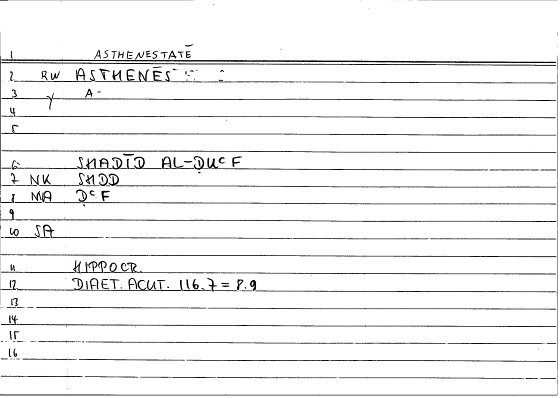 1 ASTHENESTATĒ
2 RW ASTHENĒS
3 A-
4
5
6 SHADĪD AL-ḌUᶜF
7 NK SHDD
8 MA ḌᶜF
9
10 SA
11 HIPPOCR.
12 DIAET. ACUT. 116.7 = 8.9
13
14
15
16